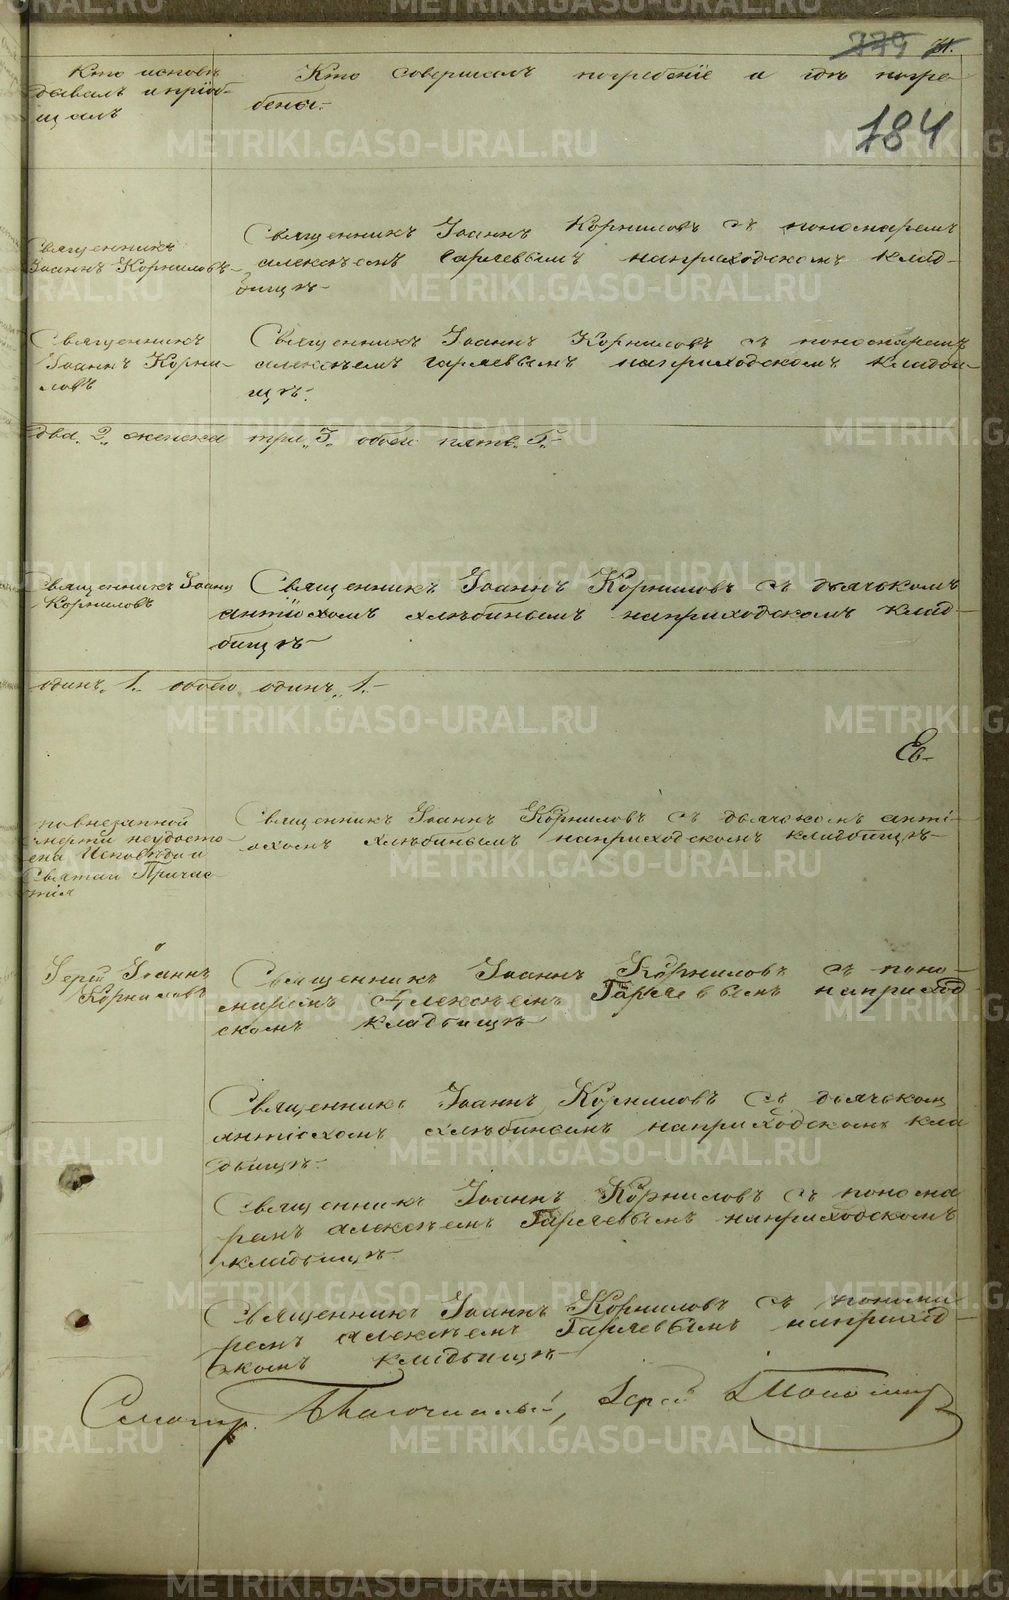 779
184
Кто исповѣ
дывалъ и пріоб-
щалъ
Кто совершалъ погребеніе и гдѣ погре-
бены.
Священникъ
Іоаннъ Корниловъ
Священникъ Іоаннъ Корниловъ съ пономаремъ
алексѣемъ Гаряевымъ наприходскомъ клад-
бищѣ
Священникъ
Іоаннъ Корни-
ловъ
Священникъ Іоаннъ Корниловъ съ пономаремъ
алексѣемъ гаряевымъ наприходскомъ кладби-
щѣ.
два „2„ женска три „3„ обоего пять „5„
Священникъ Іоаннъ
Корниловъ
Священникъ Іоаннъ Корниловъ съ дьячькомъ
антіохомъ хлѣбинымъ наприходскомъ клад-
бищѣ
одинъ „1„ обоего одинъ „1„
Ев-
повнезапной
смерти неудосто
ена Исповѣди и
Святаи Причас-
тія
Священникъ Іоаннъ Корниловъ съ дьячкомъ анті-
охомъ хлѣбинымъ наприходскомъ кладбищѣ
Іерей Іоаннъ
Корниловъ
Священникъ Іоаннъ Корниловъ съ поно-
маремъ Алексѣемъ Гаряевымъ наприход-
скомъ кладбищѣ
Священникъ Іоаннъ Корниловъ съ дьячькомъ
антіохомъ хлѣбинымъ наприходскомъ кла
дбищѣ.
Священникъ Іоаннъ Корниловъ съ понома
ремъ алексѣемъ Гаряевымъ наприходскомъ
кладбищѣ
Священникъ Іоаннъ Корниловъ съ понома
ремъ алексѣемъ Гаряевымъ наприход-
скомъ кладбищѣ
Смотр. Благочинный, Іерей
METRIKI.GASO-URAL.RU